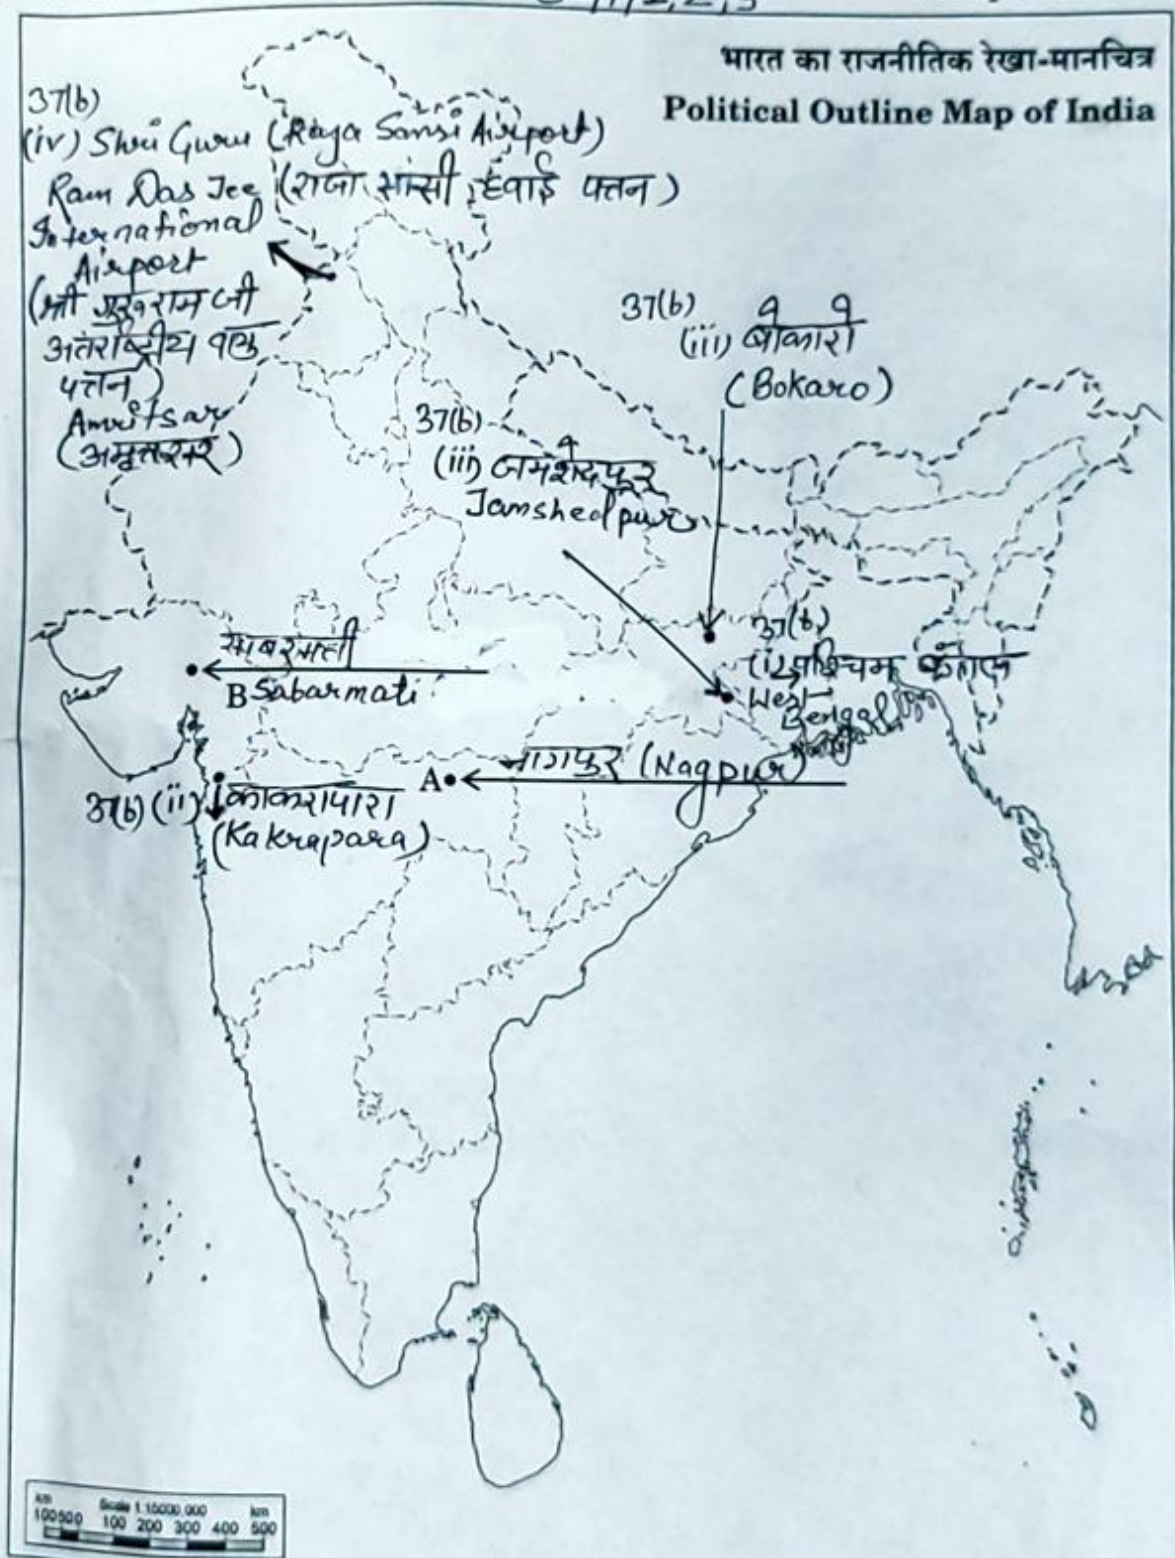 भारत का राजनीतिक रेखा-मानचित्र
Political Outline Map of India
37(b)
(iv) Shri Guru (Raja Sansi Airport)
Ram Das Jee (राजा सांसी हवाई पत्तन)
International
Airport
(श्री गुरु राम जी
अंतर्राष्ट्रीय
पत्तन)
Amritsar
(अमृतसर)
37(b)
(iii) बोकारो
(Bokaro)
37(b)
(iii) जमशेदपुर
Jamshedpur
साबरमती
B Sabarmati
37(b)
(i) पश्चिम
West
Bengal
नागपुर (Nagpur)
A
37(b) (ii) काकरापारा
(Kakrapara)
km Scale 1:15000,000 km
100 50 0 100 200 300 400 500